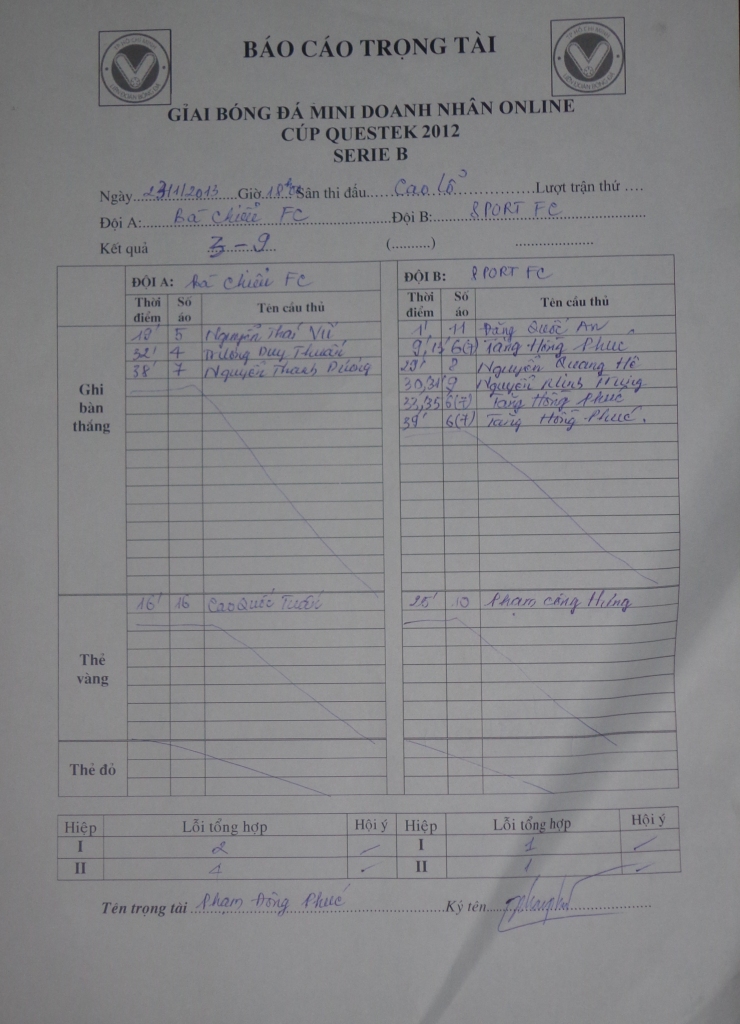 BÁO CÁO TRỌNG TÀI
GIẢI BÓNG ĐÁ MINI DOANH NHÂN ONLINE
CÚP QUESTEK 2012
SERIE B
Ngày 23/1/2013 Giờ 18h Sân thi đấu Cao Lỗ Lượt trận thứ ....
Đội A: Bà Chiểu FC Đội B: SPORT FC
Kết quả 3 - 9 (..........) ....................
ĐỘI A: Bà Chiểu FC ĐỘI B: SPORT FC
Thời điểm Số áo Tên cầu thủ Thời điểm Số áo Tên cầu thủ
Ghi bàn thắng
19' 5 Nguyễn Thái Vũ 1' 11 Đặng Quốc An
32' 4 Trương Duy Thuần 9', 13' 6(7) Tăng Hồng Phúc
38' 7 Nguyễn Thanh Dương 29' 8 Nguyễn Quang
30, 31' 9 Nguyễn Minh
33, 35 6(7) Tăng Hồng Phúc
39' 6(7) Tăng Hồng Phúc.
Thẻ vàng
16' 16 Cao Quốc Tuấn 25' 10 Phạm Công Hưng
Thẻ đỏ
Hiệp Lỗi tổng hợp Hội ý Hiệp Lỗi tổng hợp Hội ý
I 2 I 1
II 1 II 1
Tên trọng tài Phạm Đông Phúc Ký tên